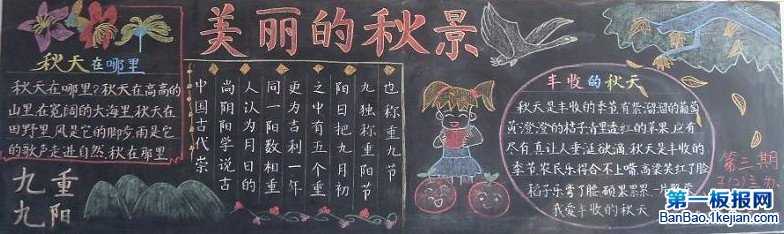 美丽的秋景
秋天在哪里
秋天在哪里?秋天在高高的
山里,在宽阔的大海里,秋天在
田野里,风是它的脚步,雨是它
的歌声,走进自然,秋在那里
九重
九阳
中国古代崇
尚阴阳学说古
人认为月日的
同一阳数相重
更为吉利一年
之中有五个重
阳日把九月初
九独称重阳节
也称重九节
丰收的秋天
秋天是丰收的季节有紫溜溜的葡萄
黄澄澄的桔子青里透红的苹果,应有
尽有,真让人垂涎欲滴,秋天是丰收的
季节,农民乐得合不上嘴,高粱笑红了脸
稻子乐弯了腰,硕果累累,一片
我爱丰收的秋天
第三期
第一板报网
BanBao.1kejian.com